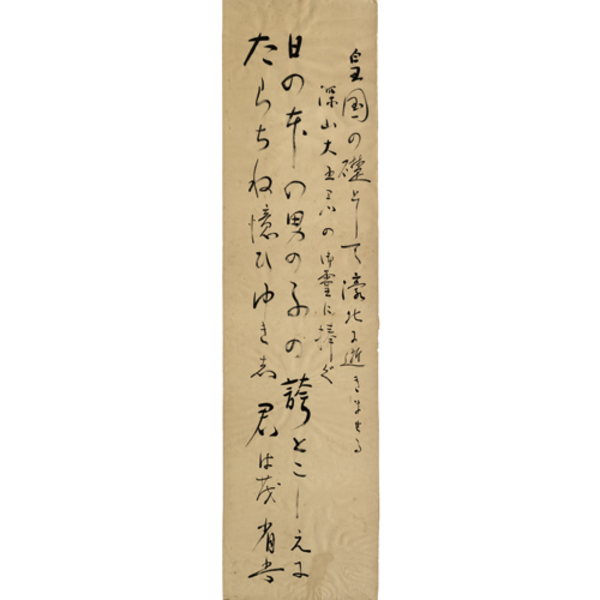 皇国の礎として濠北に逝きませる
深山大の御霊に捧ぐ
日の本の男の子の誇とこしえに
たらち祢憶ひゆきし君は